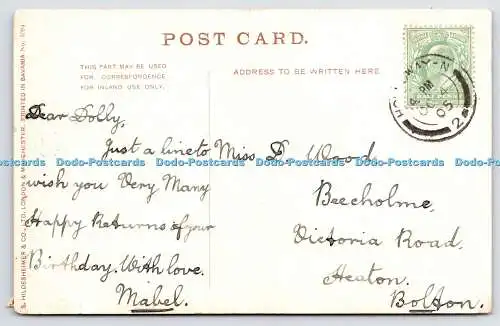 POST CARD.
THIS PART MAY BE USED
FOR CORRESPONDENCE
FOR INLAND USE ONLY.
ADDRESS TO BE WRITTEN HERE.
S. HILDESHEIMER & CO., LTD. LONDON & MANCHESTER. PRINTED IN BAVARIA No.
Dear Dolly,
Just a line to
wish you Very Many
Happy Returns of your
Birthday. With love.
Mabel.
Miss D Wood
Beecholme,
Victoria Road,
Heaton.
Bolton.
PM
OC 4
05
2
Dodo-Postcards Dodo-Postcards Dodo-Postcards Dodo-Postcards Dodo-Postcards